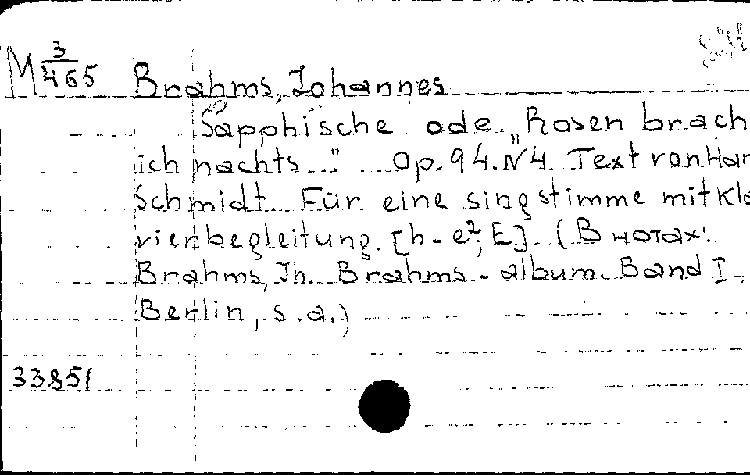 M 3/465 Brahms, Johannes
Sapphische ode „Rosen brach
ich nachts..." Op. 94. N4 Text von Han
Schmidt Für eine singstimme mit Kla
vierbegleitung. [h-e², E]. (В нотах:
Brahms, Jh. Brahms-album. Band I.
Berlin, s.a.)
33851